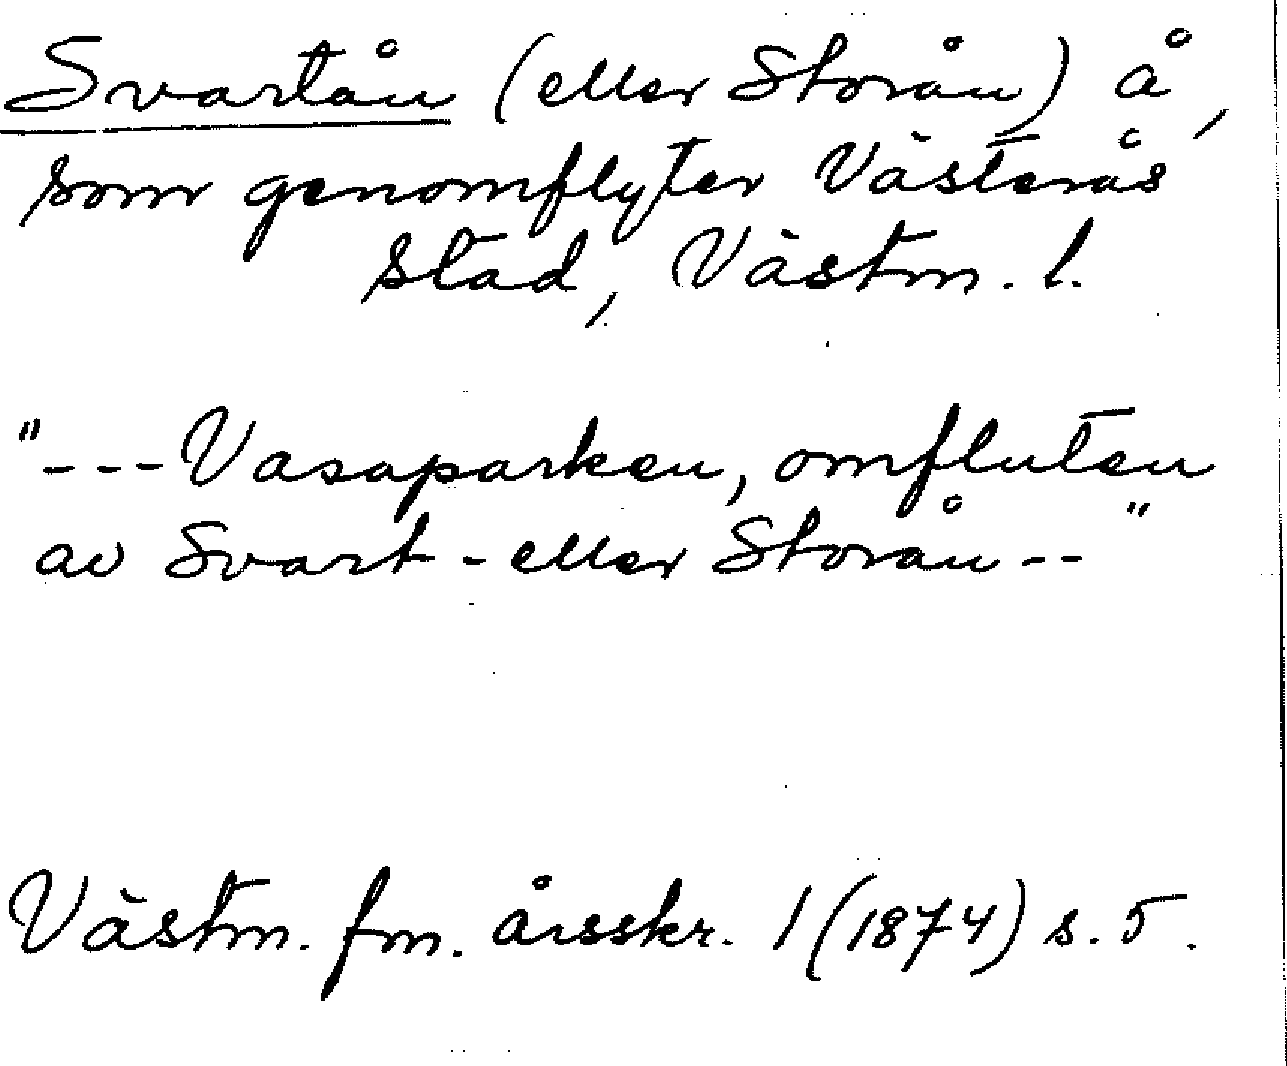 Svartån (eller Storån) å,
som genomflyter Västerås
stad, Västm. l.
"---Vasaparken, omfluten
av Svart- eller Storån--"
Västm. fm. årsskr. 1 (1874) s. 5.